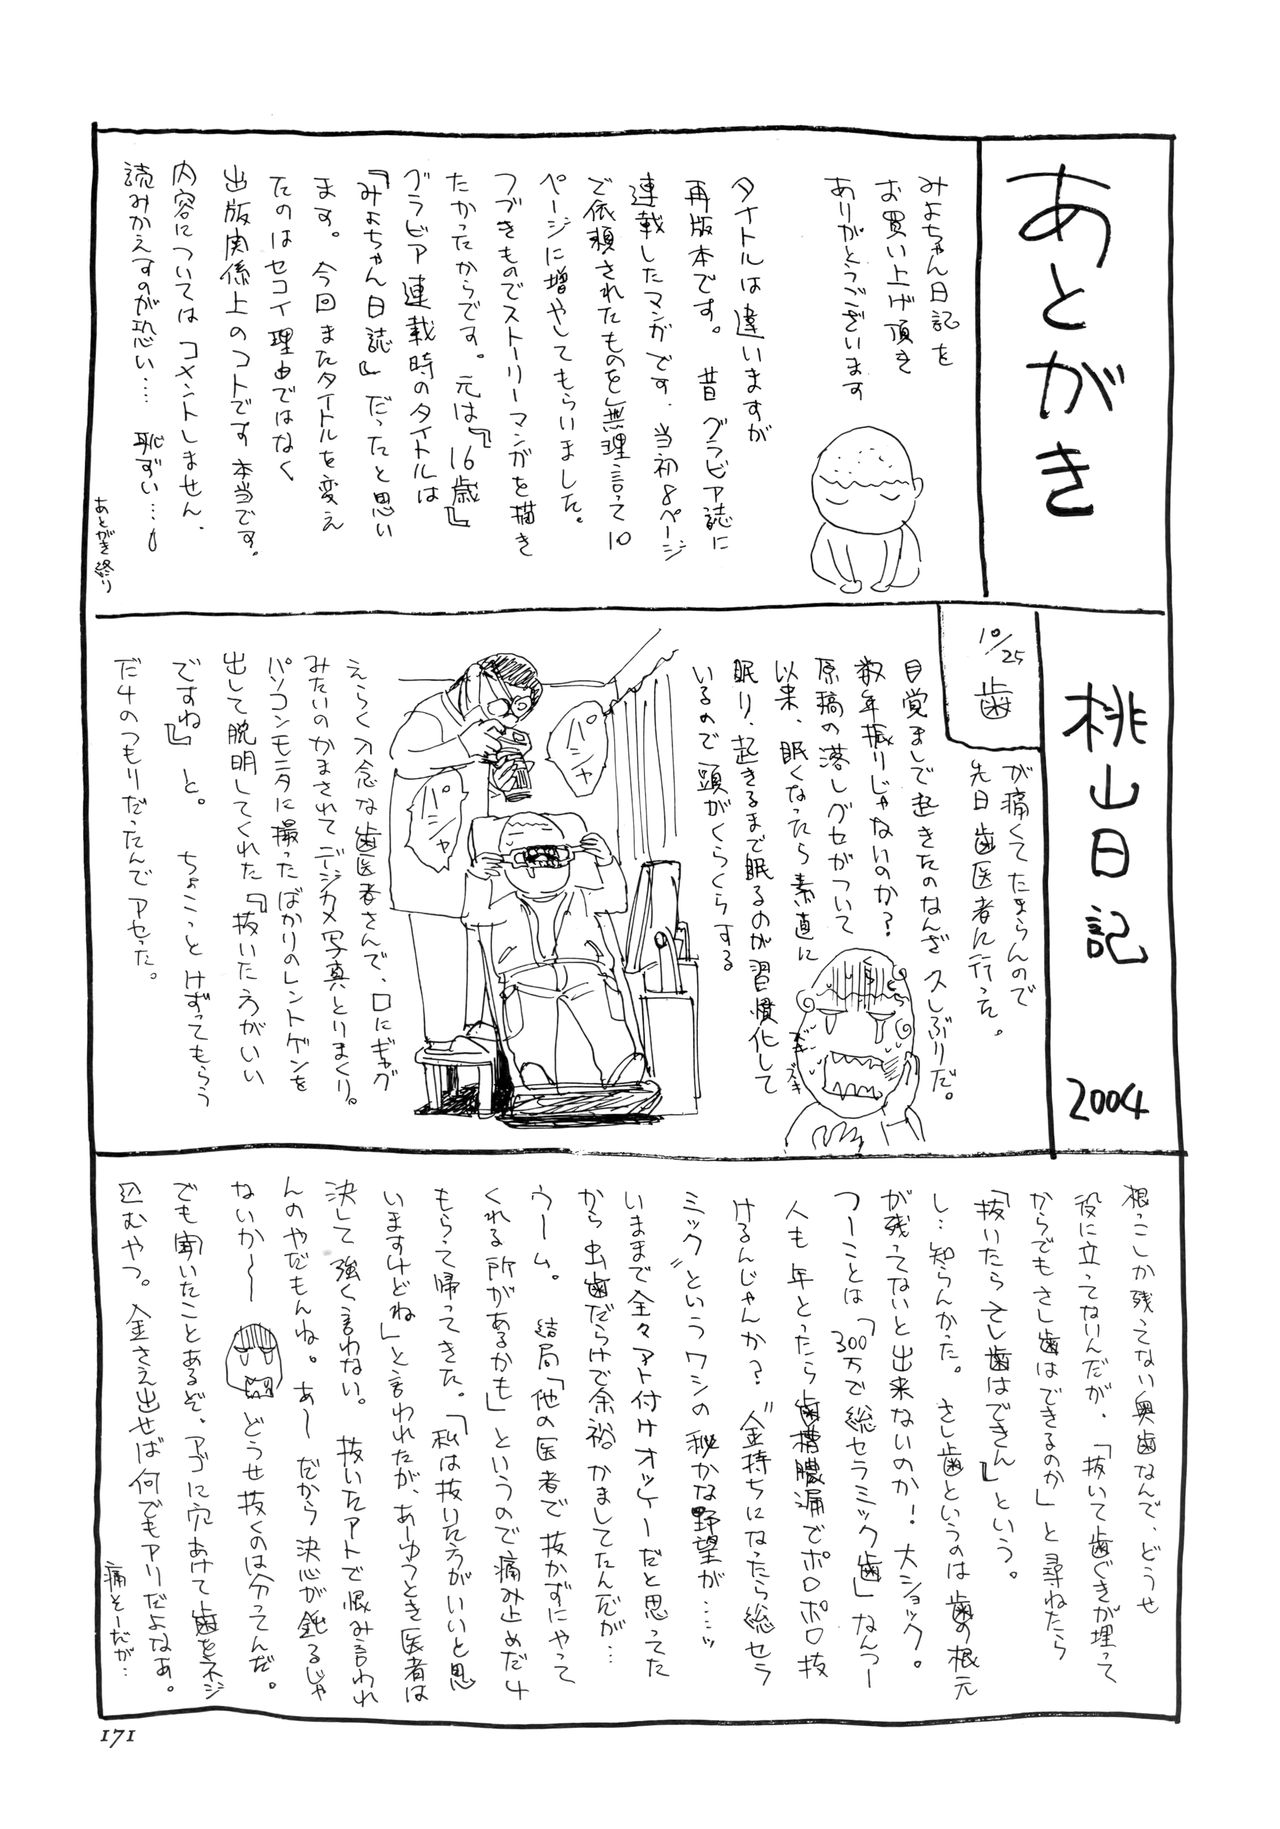 あとがき
みよちゃん日記を
お買い上げ頂き
ありがとうございます
タイトルは違いますが
再版本です。昔グラビア誌に
連載したマンガです、当初8ページ
で依頼されたものを無理言って10
ページに増やしてもらいました。
つづきものでストーリーマンガを描き
たかったからです。元は『16歳』
グラビア連載時のタイトルは
『みよちゃん日誌』だったと思い
ます。今回またタイトルを変え
たのはセコイ理由ではなく
出版関係上のコトです本当です。
内容についてはコメントしません、
読みかえすのが恐い…恥ずい…
あとがき終り
桃山日記 2004
10/25 歯
が痛くてたまらんので
先日歯医者に行った。
目覚ましで起きたのなんざ久しぶりだ。
数年振りじゃないのか?
原稿の落しグセがついて
以来、眠くなったら素直に
眠り、起きるまで眠るのが習慣化して
いるので頭がくらくらする
ズキズキ
パシャ
パシャ
えらく入念な歯医者さんで、口にギャグ
みたいのかまされてデジカメ写真とりまくり。
パソコンモニタに撮ったばかりのレントゲンを
出して脱明してくれた『抜いた方がいい
ですね』と。ちょこっとけずってもらう
だ4のつもりだったんでアセった。
根っこしか残ってない奥歯なんで、どうせ
役に立ってないんだが、「抜いて歯ぐきが埋って
からでもさし歯はできるのか」と尋ねたら
「抜いたらさし歯はできん」という。
し…知らんかった。さし歯というのは歯の根元
が残ってないと出来ないのか!大ショック。
つーことは「300万で総セラミック歯」なんつー
人も年とったら歯槽膿漏でポロポロ抜
けるんじゃんか?〝金持ちになったら総セラ
ミック〟というワシの秘かな野望が……ッ
いままで全々アト付けオッケーだと思ってた
から虫歯だらけで余裕かましてたんだが…
ウーム。結局「他の医者で抜かずにやって
くれる所があるかも」というので痛み止めだ4
もらって帰ってきた。「私は抜いた方がいいと思
いますけどね」と言われたが、あーゆうとき医者は
決して強く言わない。抜いたアトで恨み言われ
んのやだもんね。あーだから決心が鈍るじゃ
ないか〜〜どうせ抜くのは分ってんだ。
でも聞いたことあるぞ、アゴに穴あけて歯をネジ
込むやつ。金さえ出せば何でもアリだよなあ。
痛そーだが…
171